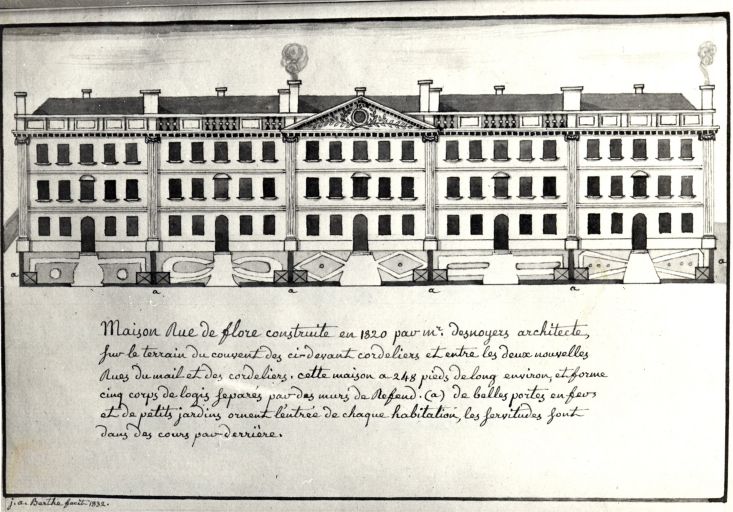 a
a
a
a
a
a
Maison Rue de flore construite en 1820 par mr. desnoyers architecte,
sur le terrain du couvent des ci-devant cordeliers et entre les deux nouvelles
Rues du mail et des cordeliers. cette maison a 248 pieds de long environ, et forme
cinq corps de logis separés par des murs de Refend. (a) de belles portes en fer
et de petits jardins ornent l'entrée de chaque habitation, les servitudes sont
dans des cours par derrière.
j. a. Berthe fecit 1832.